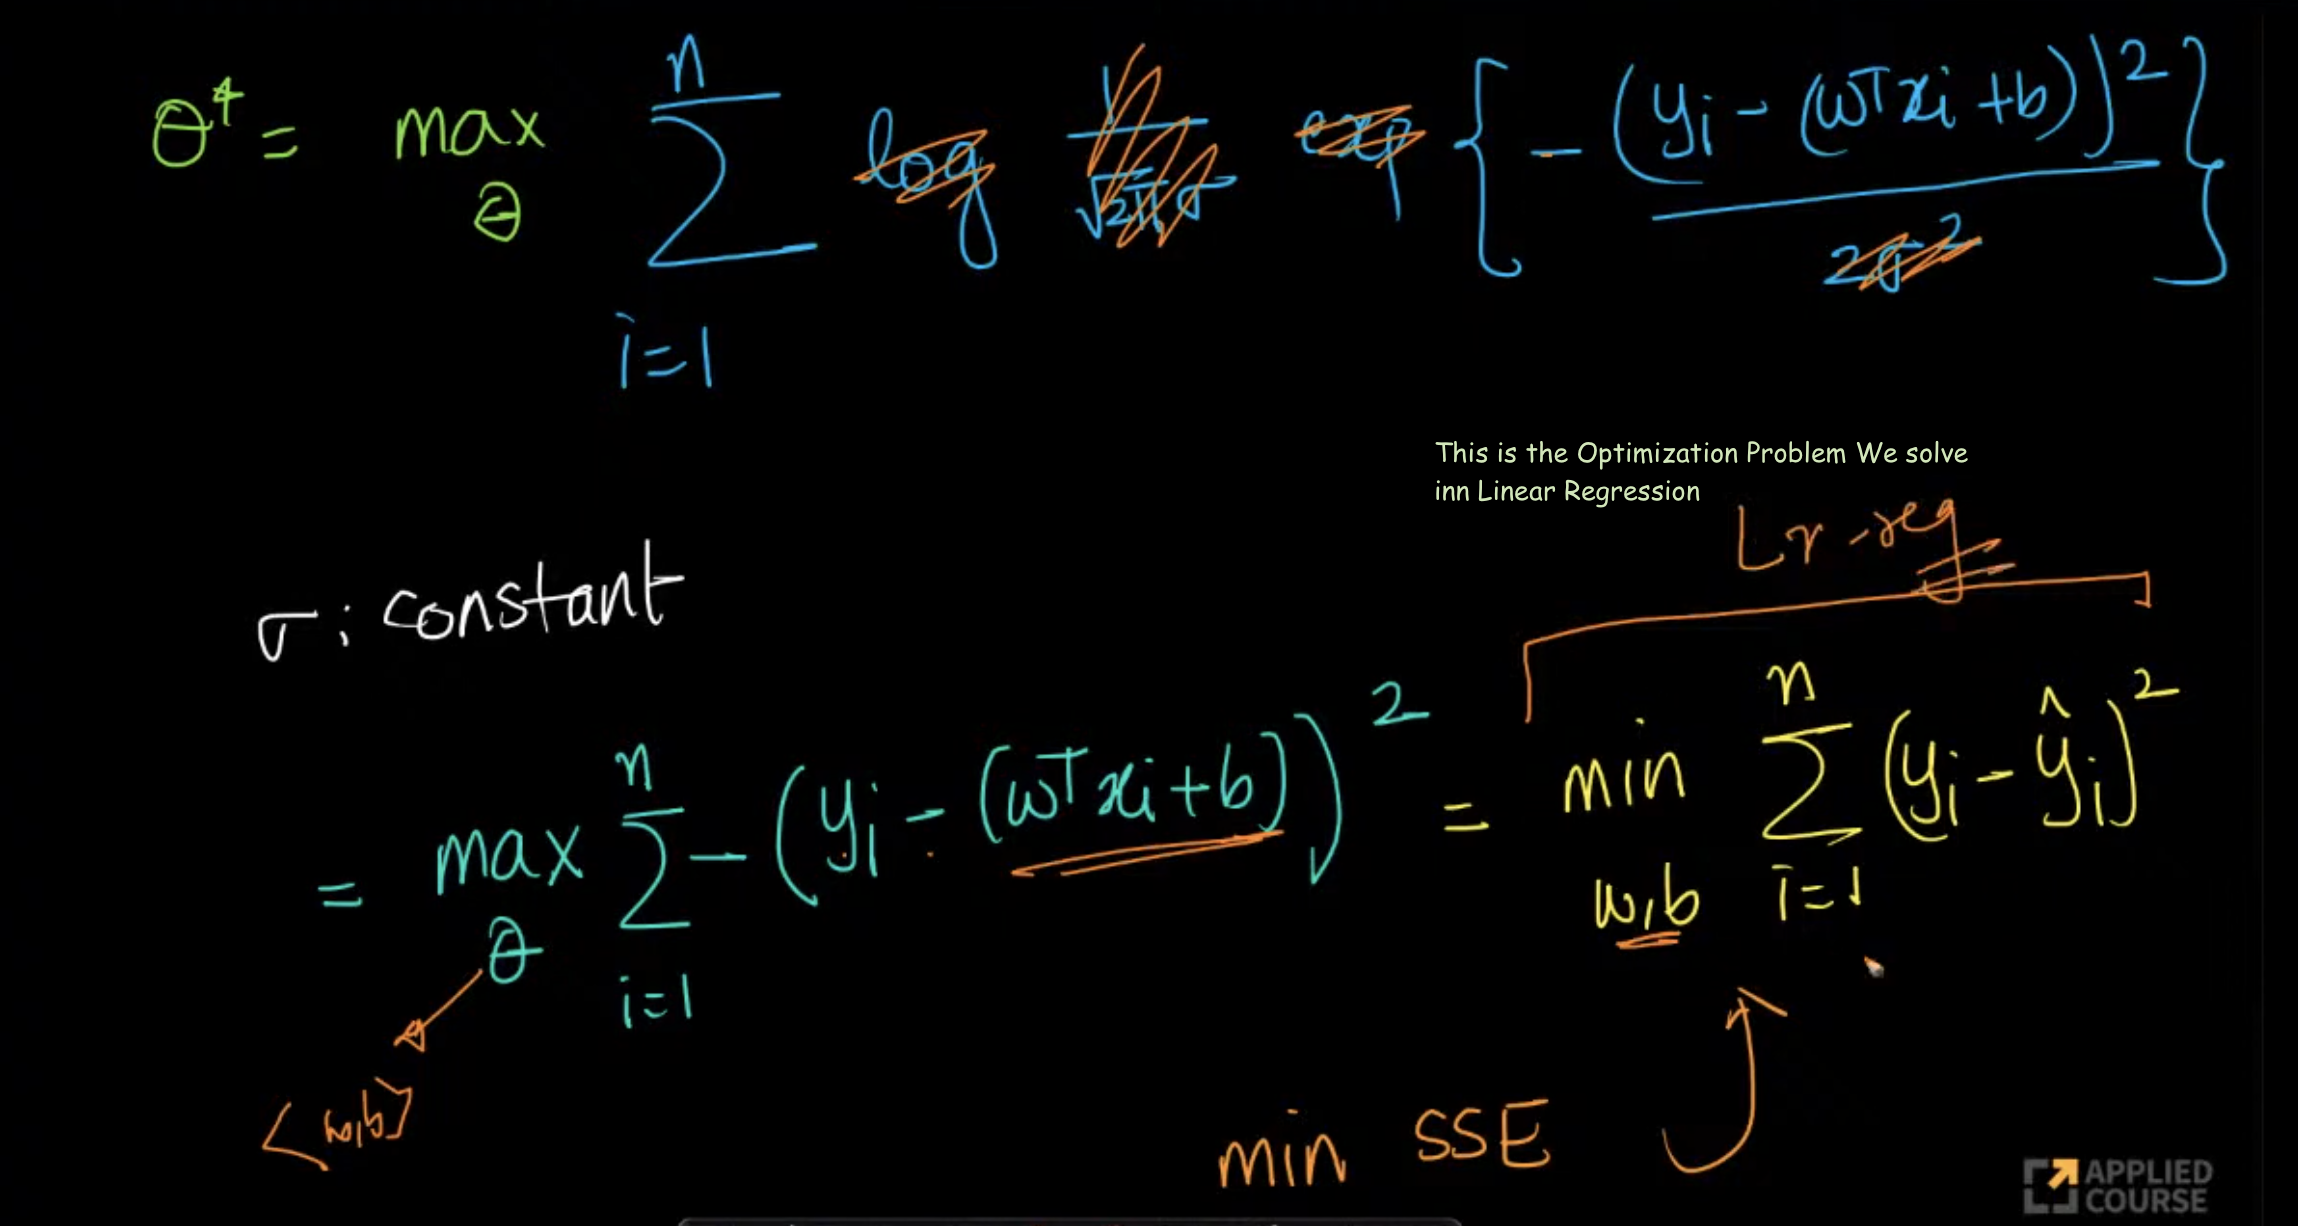 θ* = max θ n Σ i=1 log 1/√2π σ exp { - (yi - (wᵀxi + b))² / 2σ² }
This is the Optimization Problem We solve
inn Linear Regression
Lr-reg
σ : constant
= max θ n Σ i=1 - (yi - (wᵀxi + b))² = min w,b n Σ i=1 (yi - ŷi)²
<w,b>
min SSE
APPLIED
COURSE